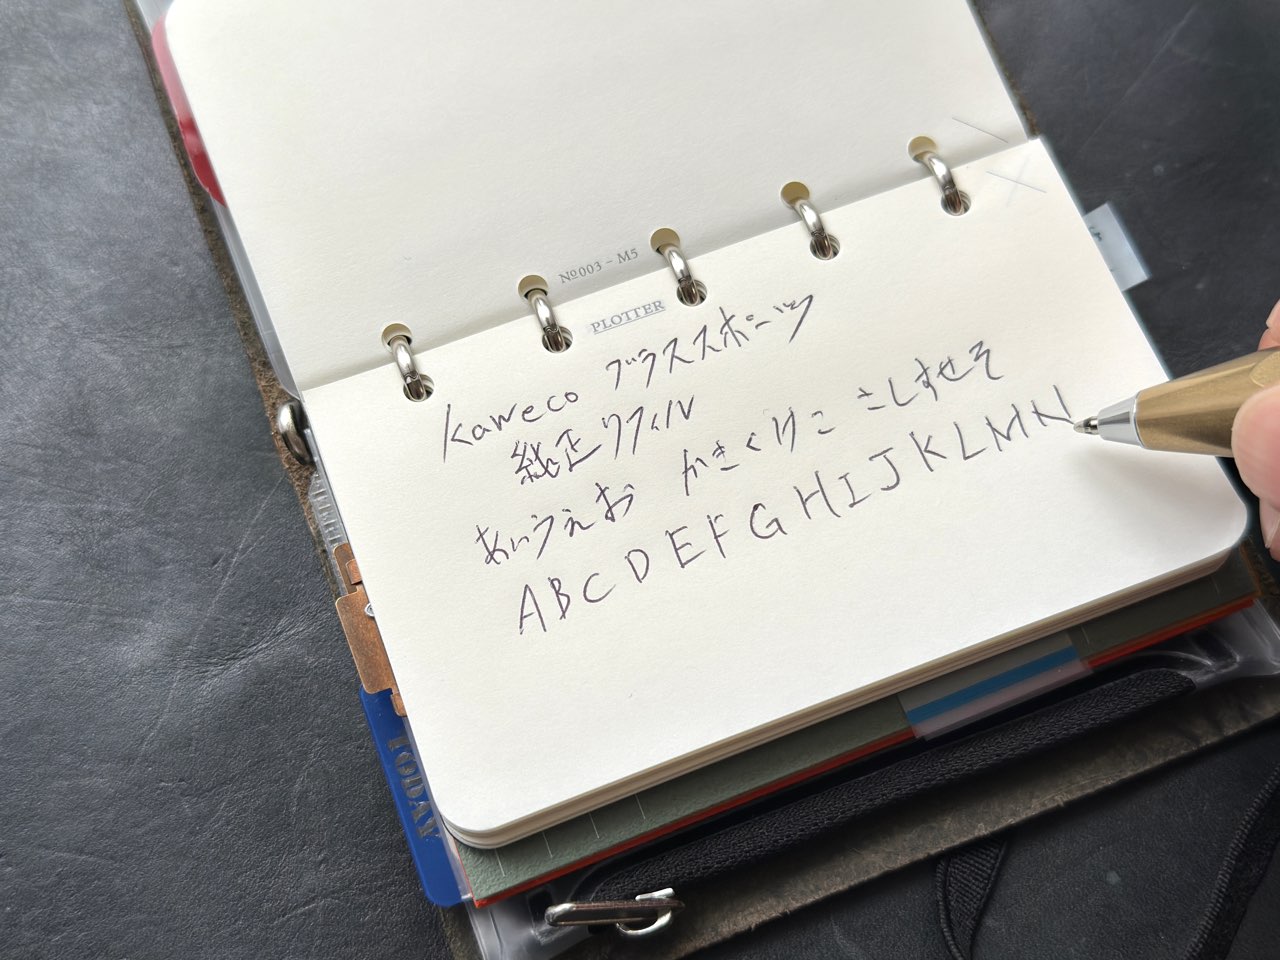 №003 - M5
PLOTTER
Kaweco ブラススポーツ
純正リフィル
あいうえお かきくけこ さしすせそ
ABCDEFGHIJKLMN
TODAY